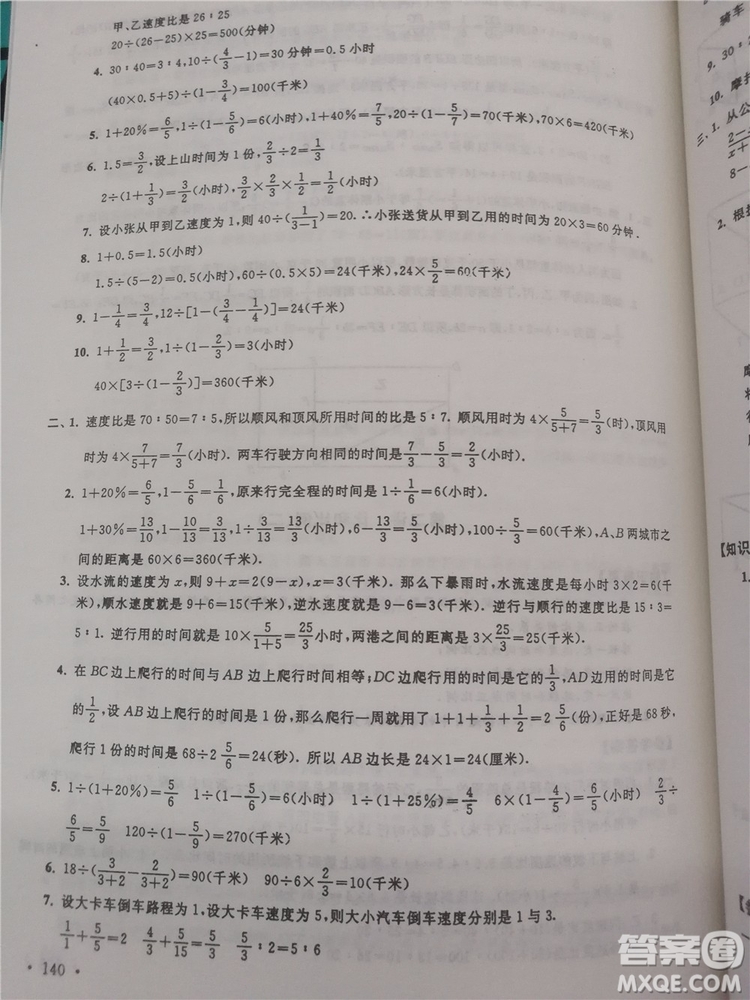 甲、乙速度比是 26∶25
20÷(26-25)×25=500(分钟)
4. 30∶40=3∶4,10÷(4/3-1)=30分钟=0.5小时
(40×0.5+5)÷(1-3/4)=100(千米)
5. 1+20%=6/5,1÷(1-5/6)=6(小时),1+40%=7/5,20÷(1-5/7)=70(千米),70×6=420(千米)
6. 1.5=3/2,设上山时间为1份,2/3÷2=1/3
2÷(1+1/3)=3/2(小时),3/2×2/3×1/2=1/2(小时)
7. 设小张从甲到乙速度为1,则40÷(4/(3-1))=20.∴小张送货从甲到乙用的时间为20×3=60分钟.
8. 1+0.5=1.5(小时)
1.5÷(5-2)=0.5(小时),60÷(0.5×5)=24(千米),24×5/2=60(千米)
9. 1-1/4=3/4,12÷[1-(3/4-1/4)]=24(千米)
10. 1+1/2=3/2,1÷(1-2/3)=3(小时)
40×[3÷(1-2/3)]=360(千米)
二、1. 速度比是70∶50=7∶5,所以顺风和顶风所用时间的比是5∶7.顺风用时为4×5/(5+7)=5/3(时),顶风用
时为4×7/(5+7)=7/3(小时).两车行驶方向相同的时间是7/3-5/3=2/3(小时)
2. 1+20%=6/5,1-5/6=1/6(小时),原来行完全程的时间是1÷1/6=6(小时).
1+30%=13/10,1-10/13=3/13,1÷3/13=13/3(小时),6-13/3=5/3(小时),100÷5/3=60(千米),A、B两城市之
间的距离是60×6=360(千米).
3. 设水流的速度为x,则9+x=2(9-x),x=3(千米).那么下暴雨时,水流速度是每小时3×2=6(千
米),顺水速度就是9+6=15(千米),逆水速度就是9-6=3(千米).逆行与顺行的时间比是15∶3=
5∶1.逆行用的时间就是10×5/(1+5)=25/3(小时),两港之间的距离是3×25/3=25(千米).
4. 在BC边上爬行的时间与AB边上爬行时间相等;DC边爬行用的时间是它的1/3,AD边用的时间是它
的1/2,设AB边上爬行的时间是1份,那么爬行一周就用了1+1+1/3+1/2=2 5/6(份),正好是68秒,
爬行1份的时间是68÷2 5/6=24(秒).所以AB边上是24×1=24(厘米).
5. 1÷(1+20%)=5/6 1÷(1-5/6)=6(小时) 1÷(1+25%)=4/5 6×(1-4/5)=5/6(小时) 2/3÷
6/5=5/9 120÷(1-5/9)=270(千米)
6. 18÷(3/(3+2)-2/(3+2))=90(千米) 90÷6×2/3=10(千米)
7. 设大卡车倒车路程为1,设大卡车速度为5,则大小汽车倒车速度分别是1与3.
1/1+5/5=2 4/5+5/15=5/3 5/3∶2=5∶6
• 140 •
骑车
9. 30÷
10. 摩托
三、1. 从公
8-
2. 根据
摩
【知识
1.
答案圈
MXQE.COM